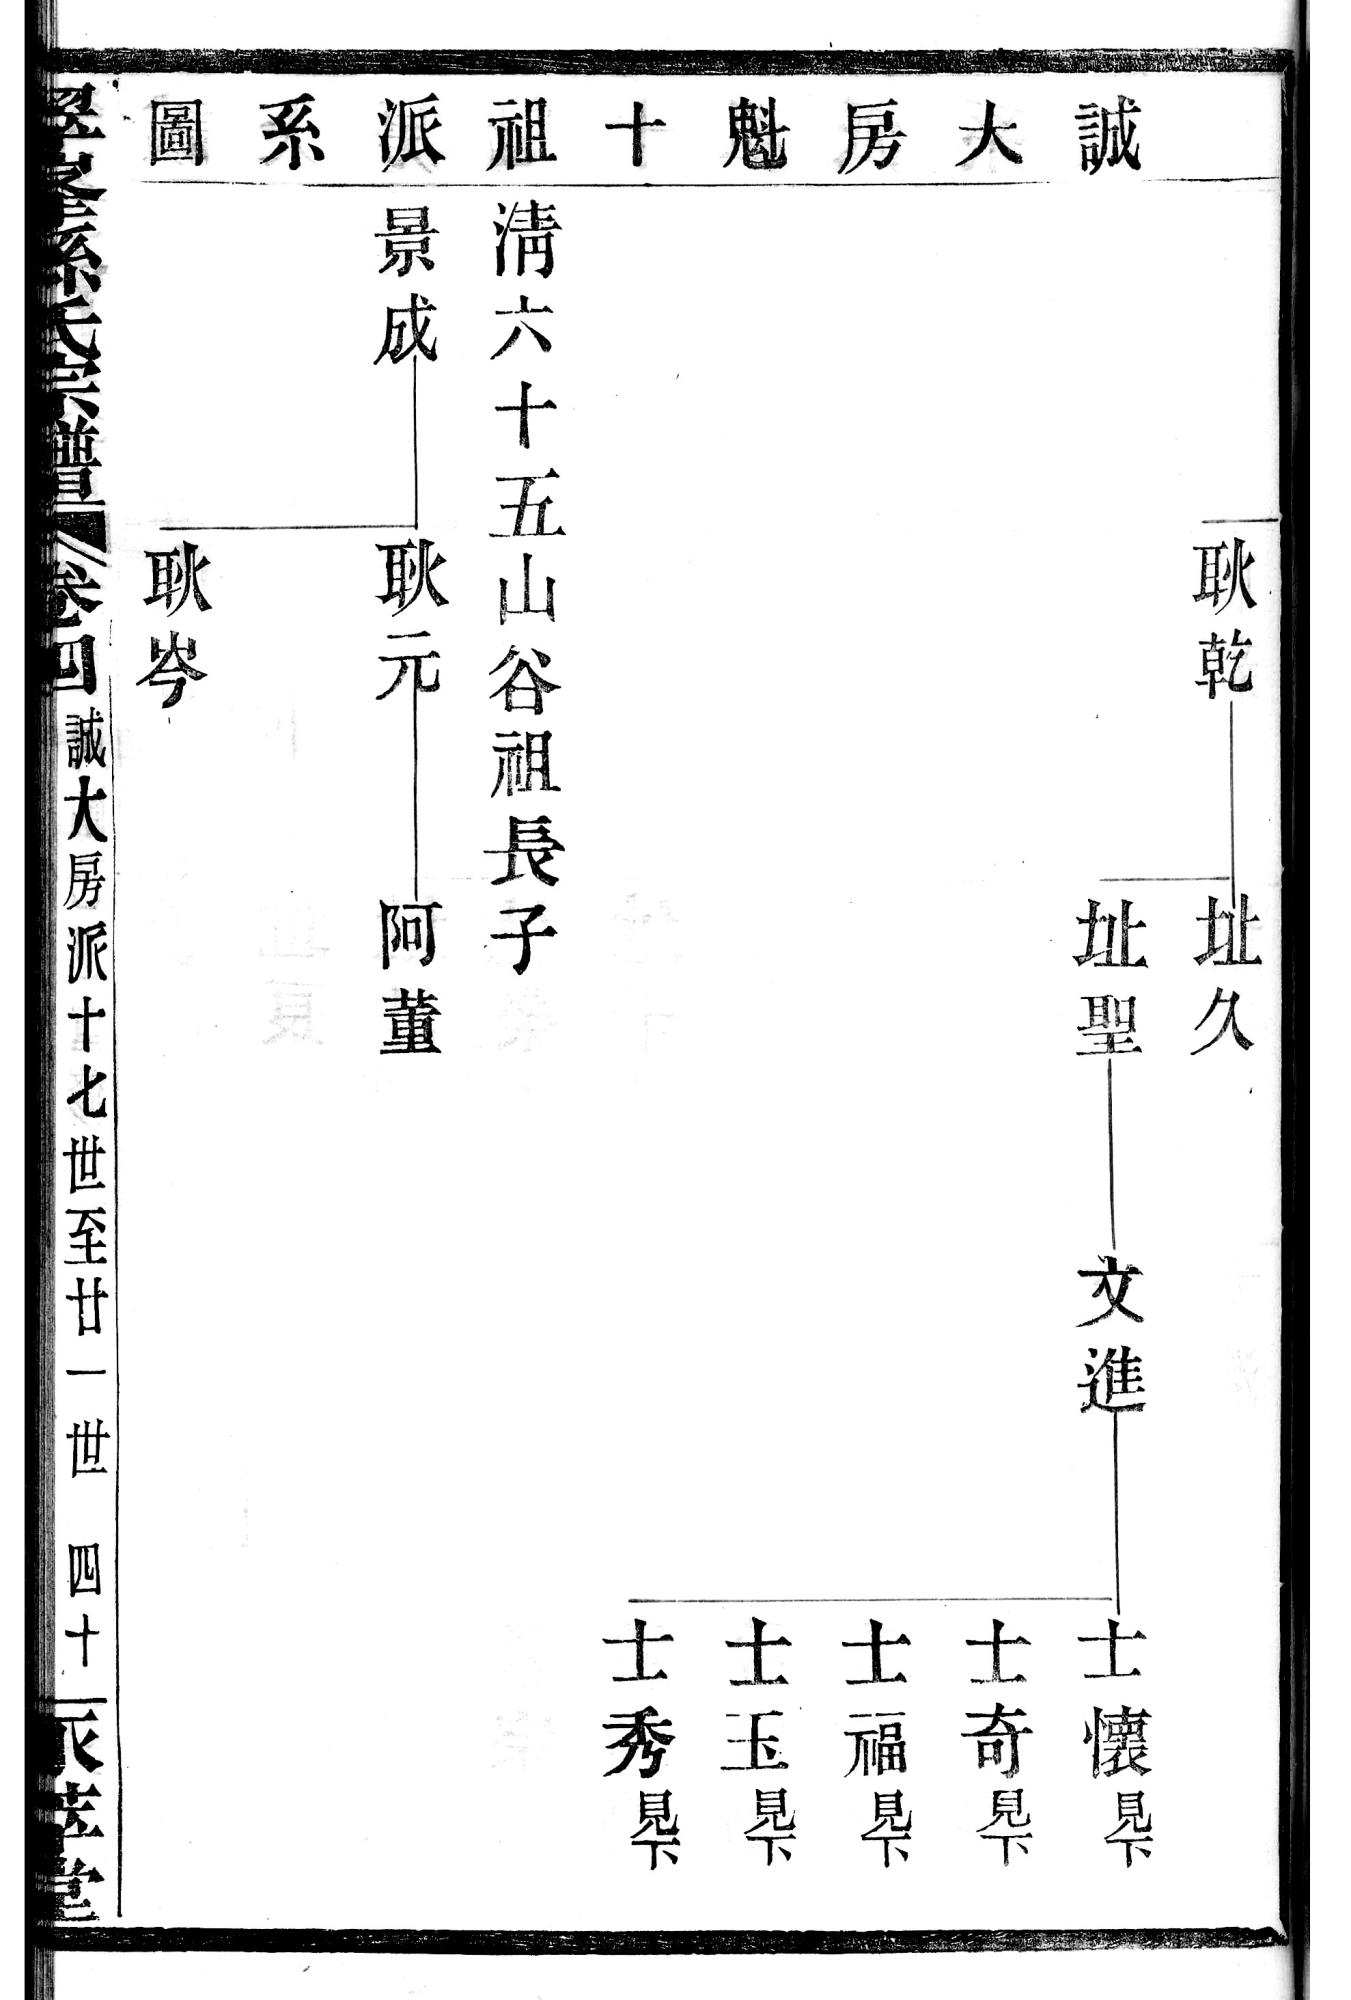 誠大房魁十祖派系圖
耿乾
址久
址聖
文進
士懷見下
士奇見下
士福見下
士玉見下
士秀見下
淸六十五山谷祖長子
景成
耿元
阿董
耿岑
孫氏宗譜
卷四
誠大房派十七世至廿一世
四十
堂